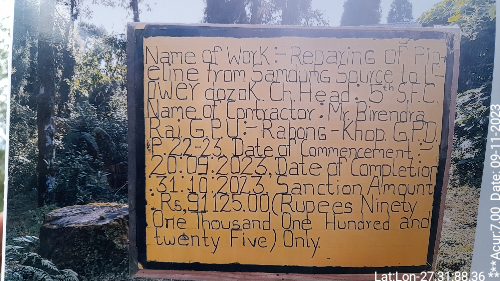 Name of Work:- Repairing of Pip-
eline from Samdung Source to Lo-
wer gozok. Ch. Head:- 5th S.F.C.
Name of Contractor:- Mr. Birendra
Rai, G.P.U:- Rabong-Khop. G.P.D.
P. 22-23. Date of Commencement:-
20.09.2023. Date of Completion
:31.10.2023. Sanction Amount
:Rs, 91125.00(Rupees Ninety
One Thousand One Hundred and
twenty Five) Only.
Lat:Lon-27.31:88.36